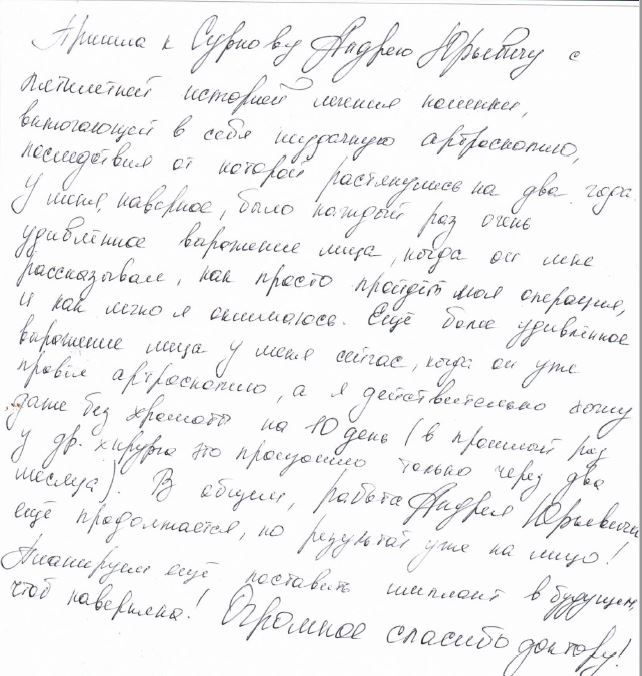 Пришла к Сурнову Андрею Юрьевичу с
пятилетней историей лечения коленки,
включающей в себя неудачную артроскопию,
последствия от которой растянулись на два года.
У меня, наверное, было каждый раз очень
удивлённое выражение лица, когда он мне
рассказывал, как просто пройдёт моя операция,
и как легко я оклимаюсь. Ещё более удивлённое
выражение лица у меня сейчас, когда он уже
провёл артроскопию, а я действительно хожу
даже без хромоты на 10 день (в прошлый раз
у др. хирурга это произошло только через два
месяца). В общем, работа Андрея Юрьевича
ещё продолжается, но результат уже на лицо!
Планируем ещё поставить имплант в будущем,
чтоб наверняка! Огромное спасибо доктору!